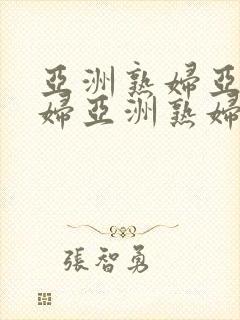 亞洲熟婦亞
婦亞洲熟婦
張智勇